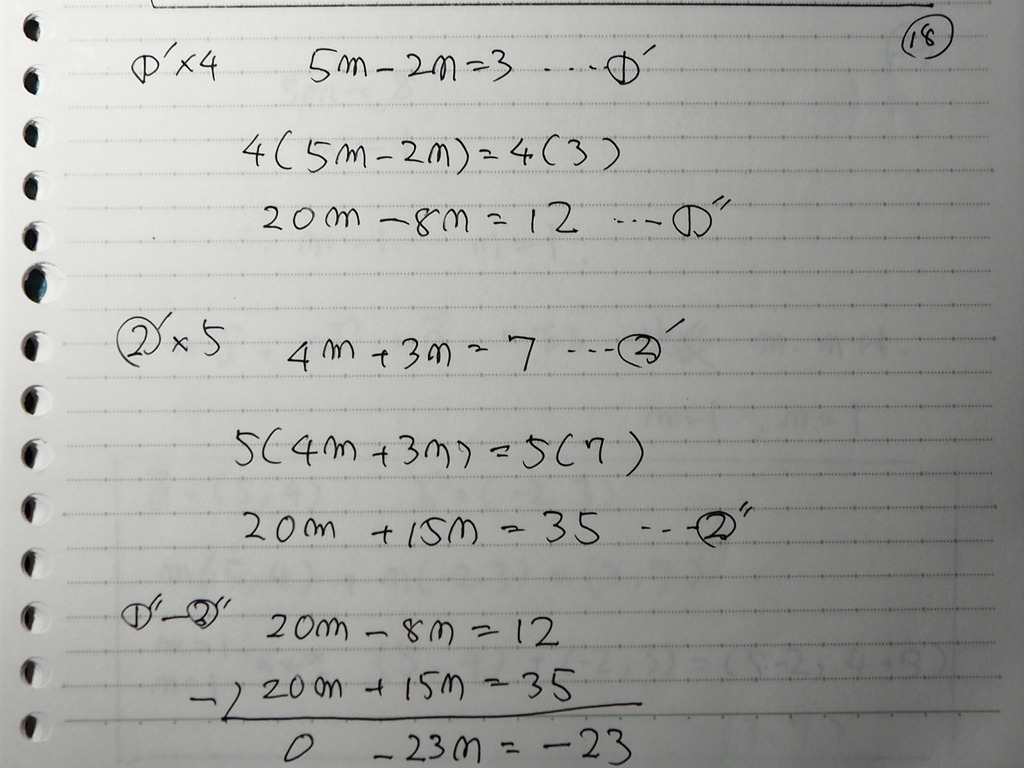 ⑱
①′×4 5m-2n=3 ····①′
4(5m-2n)=4(3)
20m-8n=12 ····①″
②′×5 4m+3n=7 ···②′
5(4m+3n)=5(7)
20m+15n=35 ···②″
①″-②″ 20m-8n=12
-) 20m+15n=35
0 -23n=-23